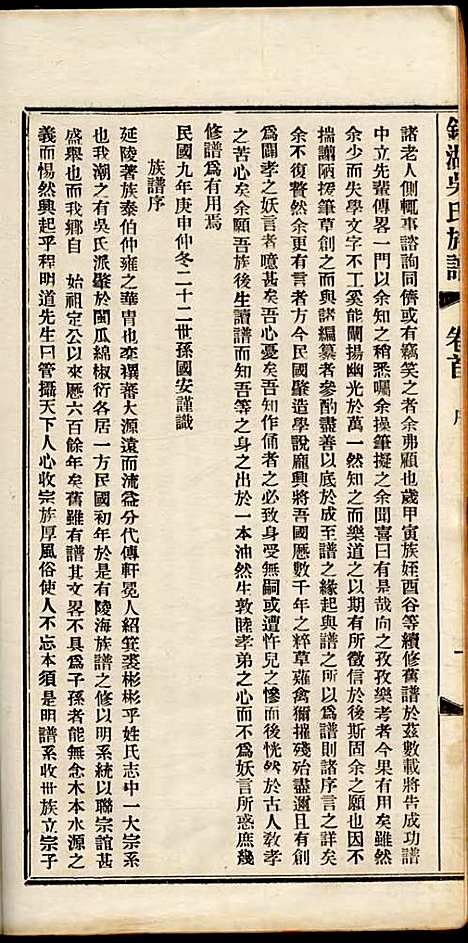 諸老人側輒事諮詢同儕或有竊笑之者余弗顧也歲甲寅族姪酉谷等續修舊譜於茲數載將告成功譜
中立先輩傳畧一門以余知之稍悉囑余操筆擬之余聞喜曰有是哉向之孜孜樂考者今果有用矣雖然
余少而失學文字不工奚能闡揚幽光於萬一然知之而樂道之以期有所徵信於後斯固余之願也因不
揣譾陋援筆草創之而與諸編纂者參酌盡善以底於成至譜之緣起與譜之所以爲譜則諸序言之詳矣
余不復贅然余更有言者方今民國肇造學說龐興將吾國歷數千年之粹草薙禽獮摧殘殆盡邇且有創
爲闢孝之妖言者噫甚矣吾心憂矣吾知作俑者之必致身受無嗣或遭忤兒之慘而後恍然於古人敎孝
之苦心矣余願吾族後生讀譜而知吾等之身之出於一本油然生敦睦孝弟之心而不爲妖言所惑庶幾
修譜爲有用焉
民國九年庚申仲冬二十二世孫國安謹識
族譜序
延陵著族泰伯仲雍之華胄也奕禩蕃大源遠而流益分代傳軒冕人紹箕裘彬彬乎姓氏志中一大宗系
也我潮之有吳氏派肇於閩瓜綿椒衍各居一方民國初年於是有陵海族譜之修以明系統以聯宗誼甚
盛舉也而我鄉自 始祖定公以來歷六百餘年矣舊雖有譜其文畧不具爲子孫者能無念木本水源之
義而惕然興起乎程明道先生曰管攝天下人心收宗族厚風俗使人不忘本須是明譜系收世族立宗子
湖吳氏族譜
卷首
序